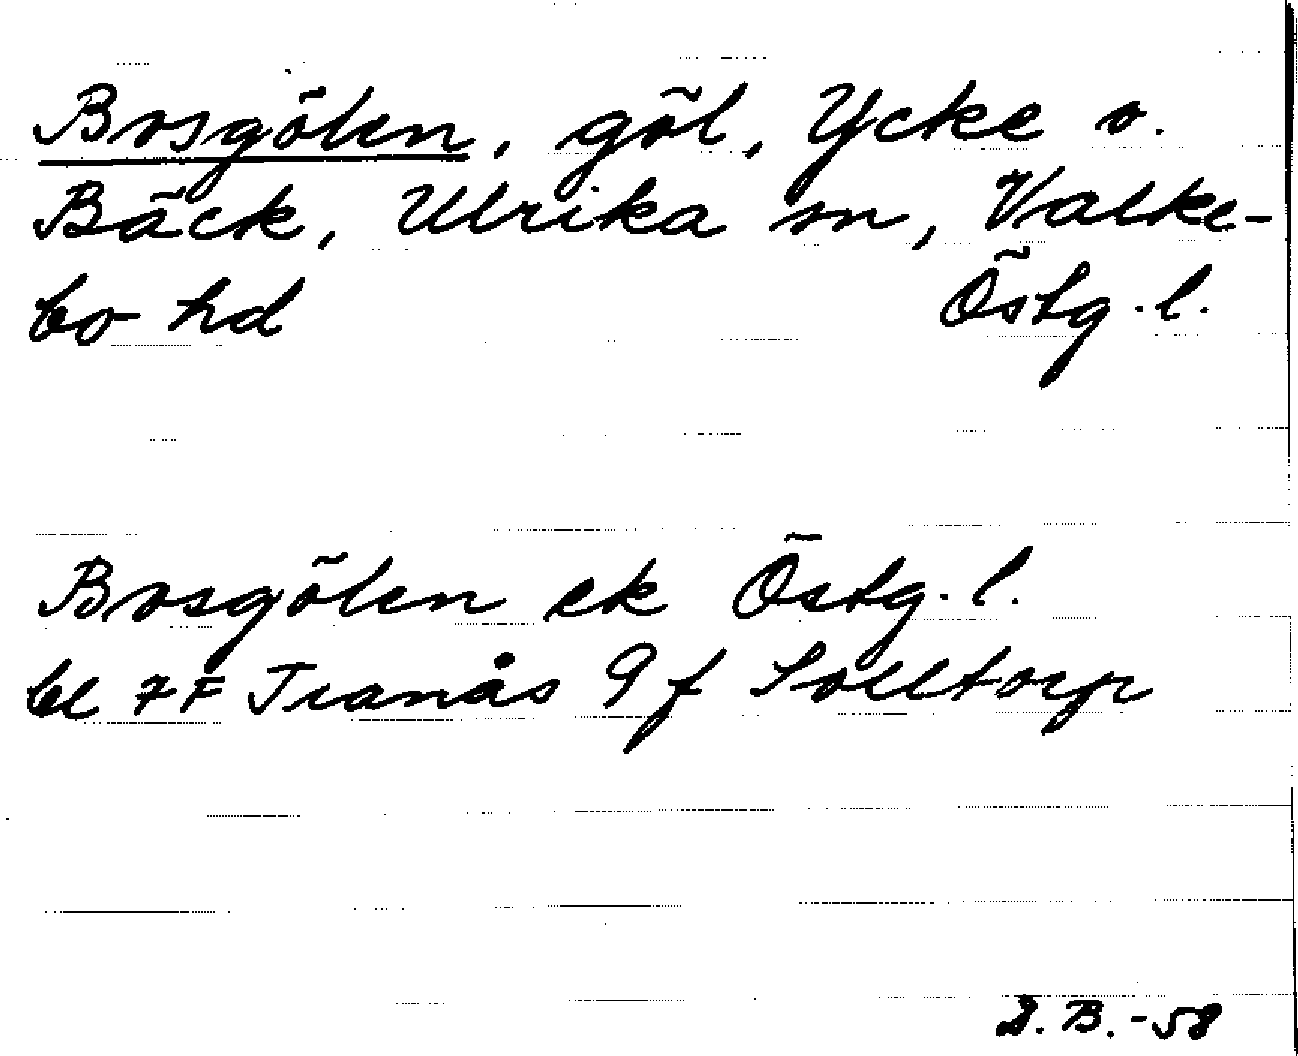 Bosgölen, göl, Ycke o.
Bäck, Ulrika sn, Valke-
bo hd Östg. l.
Bosgölen ek Östg. l.
bl 7F Tranås 9f Solltorp
D. B. -58